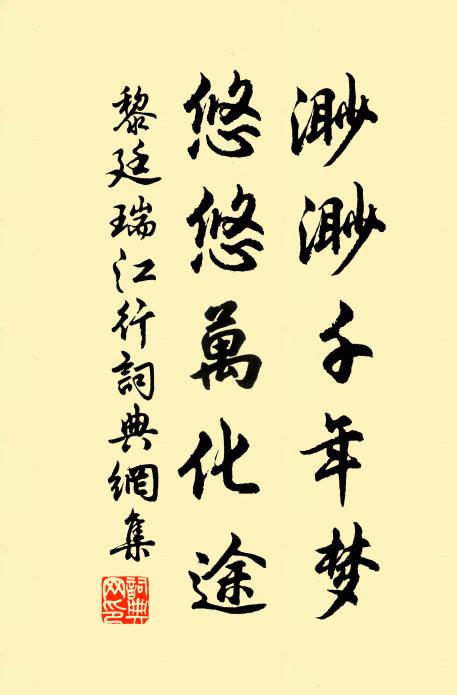 渺渺千年梦
悠悠萬化途
黎廷瑞江行詞典網集
詞典網印